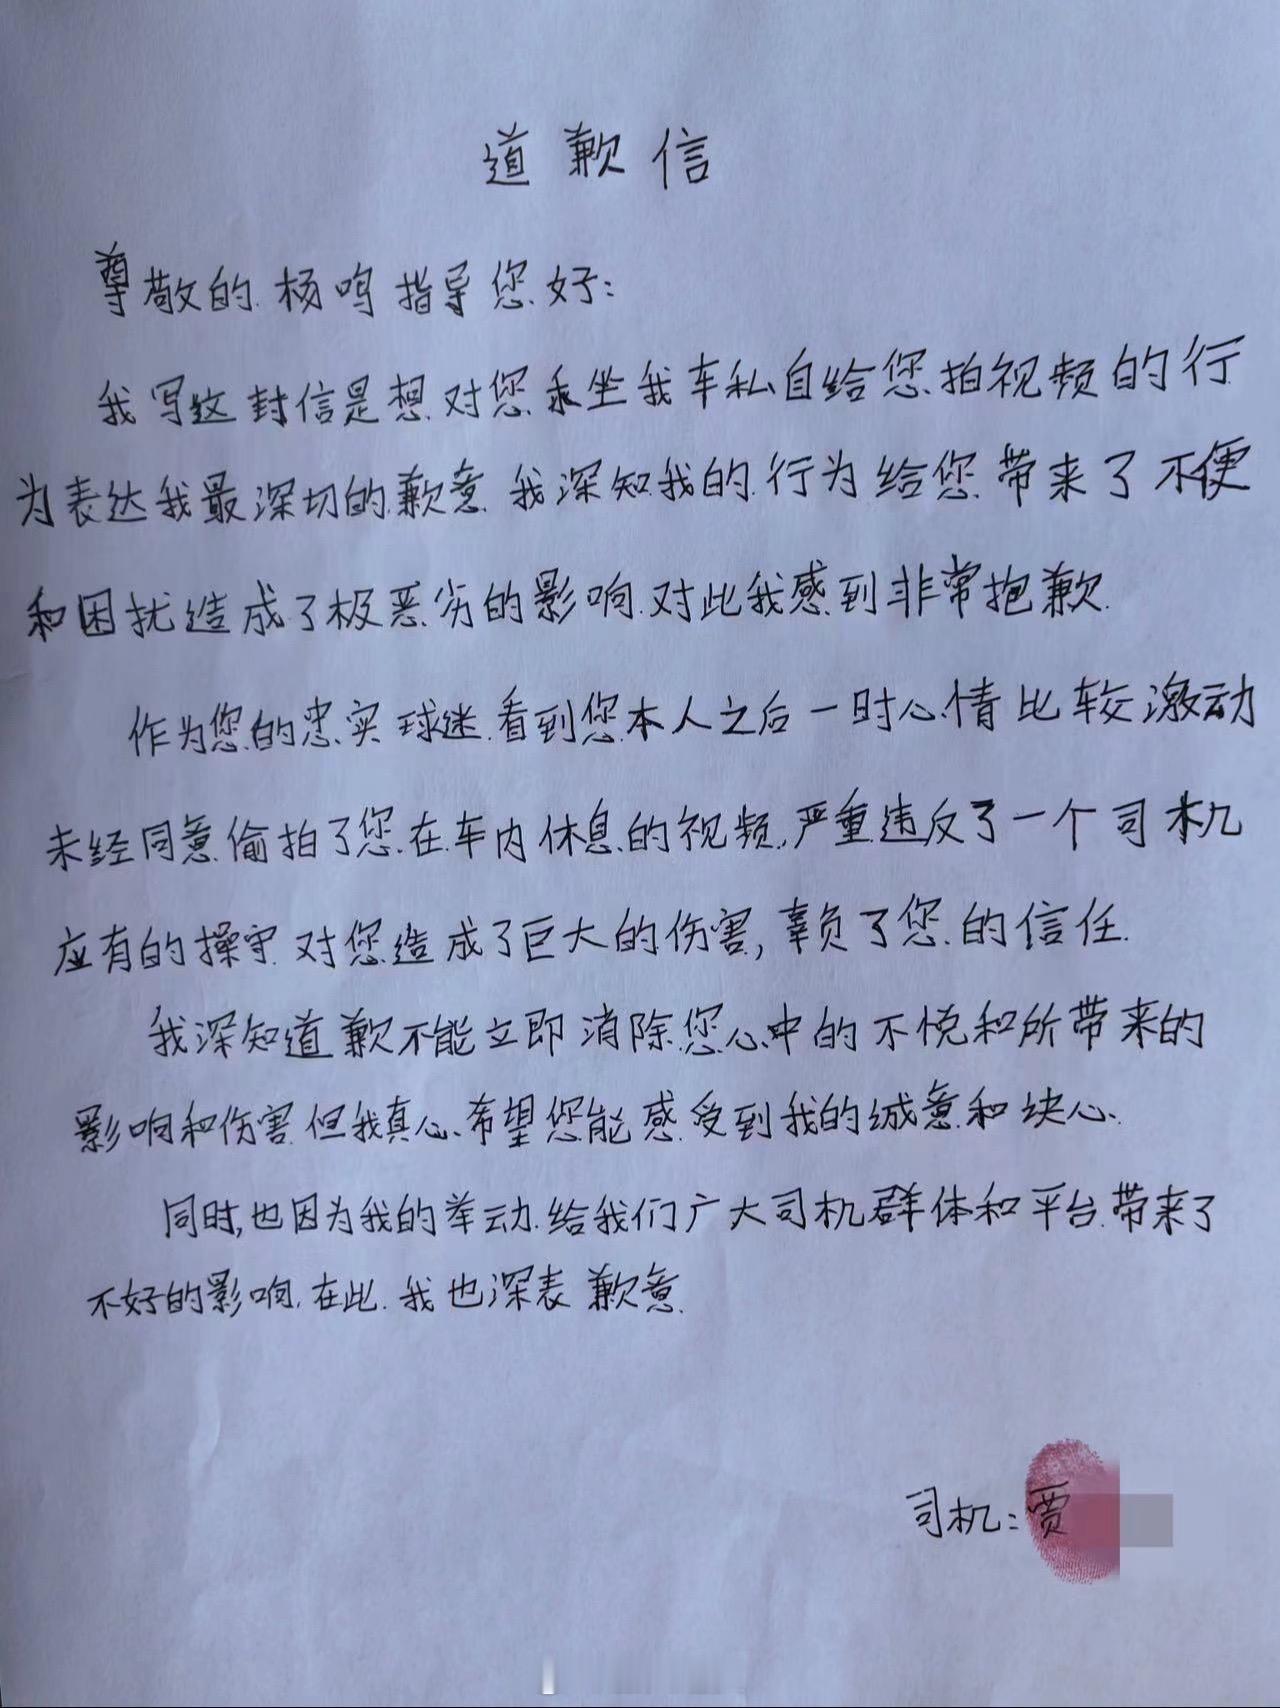 道歉信
尊敬的杨鸣指导您好：
我写这封信是想对您乘坐我车私自给您拍视频的行
为表达我最深切的歉意.我深知我的行为给您带来了不便
和困扰造成了极恶劣的影响.对此我感到非常抱歉.
作为您的忠实球迷.看到您本人之后一时心情比较激动
未经同意偷拍了您在车内休息的视频,严重违反了一个司机
应有的操守.对您造成了巨大的伤害,辜负了您的信任.
我深知道歉不能立即消除您心中的不悦和所带来的
影响和伤害.但我真心希望您能感受到我的诚意和决心.
同时,也因为我的举动.给我们广大司机群体和平台带来了
不好的影响,在此.我也深表歉意.
司机：贾